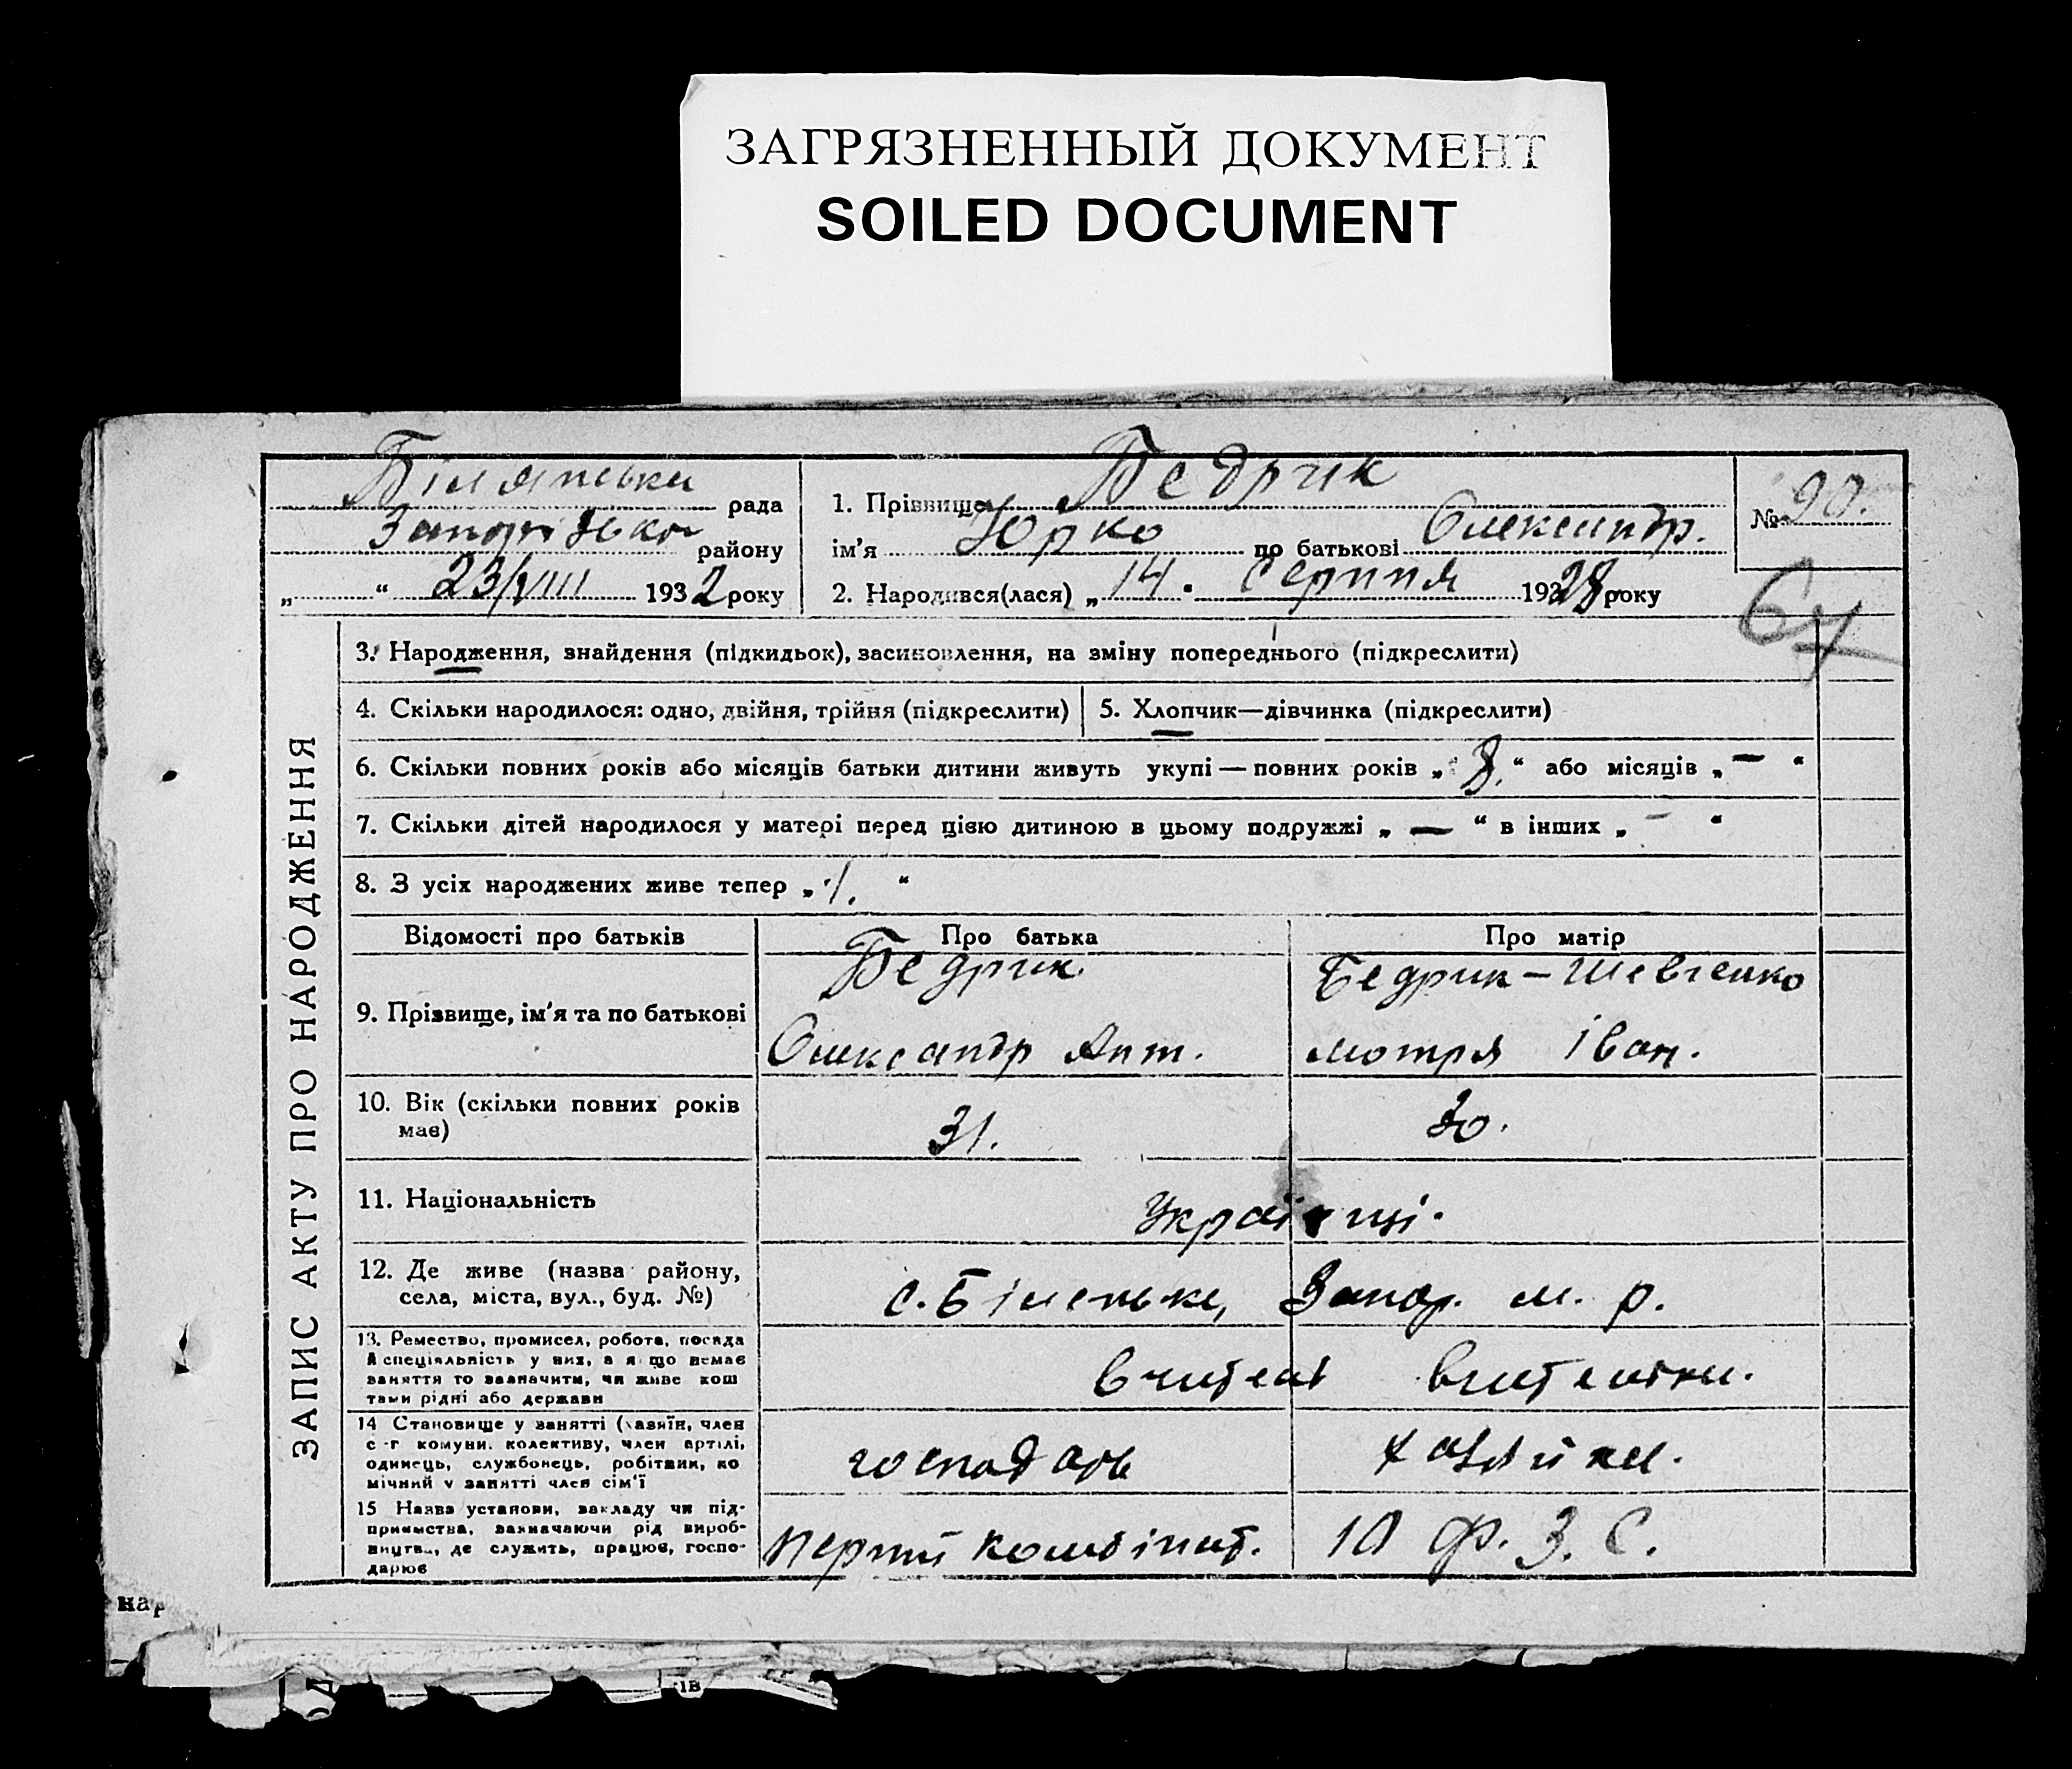 ЗАГРЯЗНЕННЫЙ ДОКУМЕНТ
SOILED DOCUMENT
Білянська рада
Запорізького району
„ “ 23/VIII 1932 року
1. Прізвище Бедрик
ім’я Юрко по батькові Олександр.
2. Народився(лася) „ 14 “ серпня 1928 року
№ 90.
67
ЗАПИС АКТУ ПРО НАРОДЖЕННЯ
3. Народження, знайдення (підкидьок), засиновлення, на зміну попереднього (підкреслити)
4. Скільки народилося: одно, двійня, трійня (підкреслити)
5. Хлопчик—дівчинка (підкреслити)
6. Скільки повних років або місяців батьки дитини живуть укупі — повних років „ 8. “ або місяців „ — “
7. Скільки дітей народилося у матері перед цією дитиною в цьому подружжі „ — “ в інших „ — “
8. З усіх народжених живе тепер „ 1. “
Відомості про батьків
Про батька
Про матір
9. Прізвище, ім’я та по батькові
Бедрик
Олександр Ант.
Бедрик – Шевченко
мотря Іван.
10. Вік (скільки повних років
має)
31.
30.
11. Національність
Українці.
12. Де живе (назва району,
села, міста, вул., буд. №)
с. Біленьке, Запор. м. р.
13. Ремество, промисел, робота, посада
й спеціяльність у них, а якщо немає
заняття то зазначити, чи живе кош
тами рідні або держави
вчитель
вчителька.
14 Становище у занятті (хазяїн, член
с-г комуни. колективу, член артілі,
одинець, службонець, робітник, по
мічний у занятті член сім’ї
господарь
хазяйка.
15 Назва установи, закладу чи під-
приємства, зазначаючи рід вироб-
ництва, де служить, працює, госпо-
дарює
перший комбінат.
10 Ф. З. С.
нар
ів